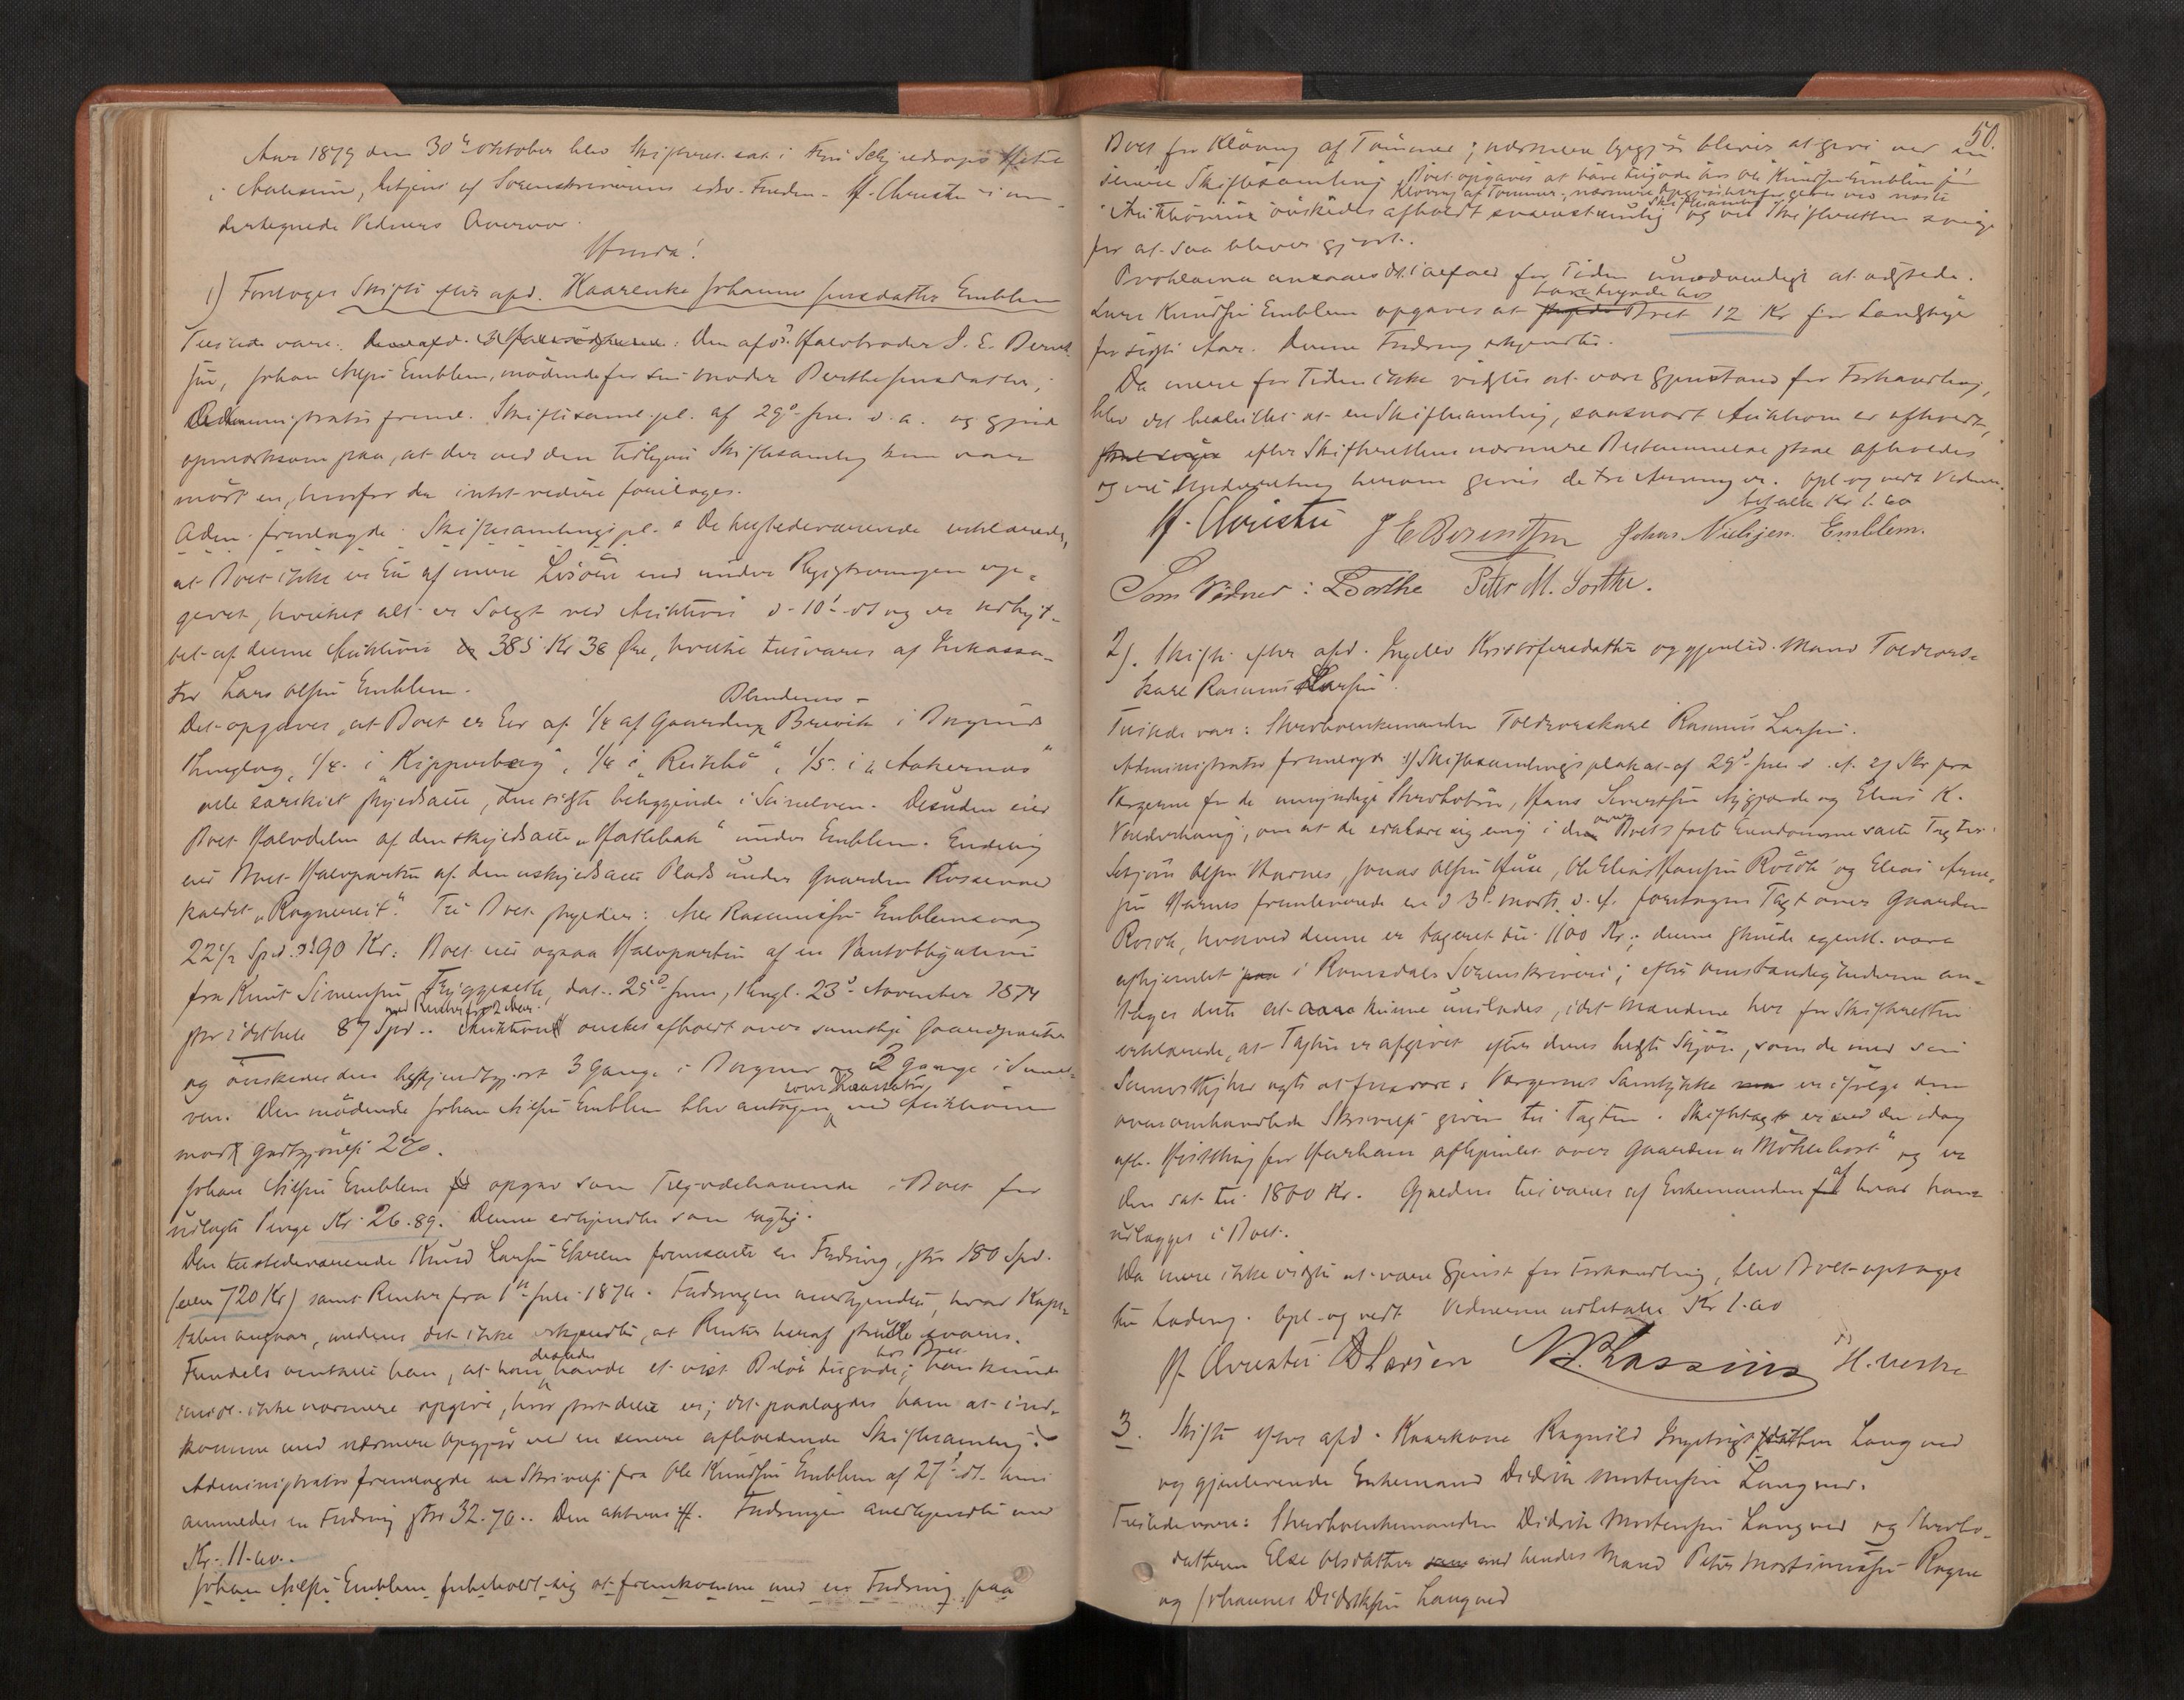 Aar 1879 den 30te Oktober blev Skifteret sat i Frue Schjeldrops Hotel
i Aalesund, betjent af Sorenskriverens edsv. Fuldm. H. Christie i un-
dertegnede Vidners Overvær.
Hvorda!
1) Foretoges Skifte efter afd. Kaarenke Johanne Jensdatter Emblem
Tilstede vare: Den afd. Halvbroder I. E. Bernt-
sen, Johan Nilsen Emblem, mødende for sin Moder Berthe Jensdatter;
Administrator freml. Skiftesaml. pl. af 29de f. m. d. a. og gjorde
opmærksom paa, at der ved den tidligere Skiftesamling kun var
mødt en, hvorfor da intet videre foretoges.
Adm. fremlagde Skiftesamlingspl. De tilstedeværende erklærede,
at Boet ikke er Eier af mere Løsøre end under Registreringen op-
givet, hvilket alt er solgt ved Auktion d. 10de ds og er Udbyt-
tet af denne Auktion 385 Kr 38 Øre, hvilke tilsvares af Inkassa-
tor Lars Olsen Emblem.
Blindemс-
Det opgaves, at Boet er Eier af 1/4 af Gaarden Brevik i Borgunds
Thinglag, 1/4 i "Kipperberg", 1/4 i "Reitebø", 1/5 i "Aakernæs"
alle særskilt skyldsatte, den sidste beliggende i Søneelven. Desuden eier
Boet Halvdelen af den skyldsatte "Hatlebak" under Emblem. Endelig
eier Boet Halvparten af den uskyldsatte Plads under Gaarden Rossevold
kaldet "Ragnereit". Til Boet skylder: Nils Rasmussen Emblemsvaag
22 1/2 Spd. 90 Kr. Boet eier ogsaa Halvparten af en Pantobligation
fra Knut Simensen Tryggeseth, dat. 25de Juni, thingl. 23de November 1874
med Renter for 2 Aar.
stor i det hele 87 Spd.. Auktion ønskes afholdt over samtlige Gaardparter
og ønskedes den bekjendtgjort 3 Gange i Borgund og 2 Gange i Søneel-
som Kaustator
ven. Den mødende Johan Nilsen Emblem blev antagen ved Auktionen
mod Godtgjørelse 2%.
Johan Nilsen Emblem opgav som Tilgodehavende i Boet for
udlagte Penge Kr. 26.89. Denne erkjendtes som rigtig.
Den tilstedeværende Knud Larsen Ekrem fremsatte en Fordring, stor 180 Spd.
(eller 720 Kr) samt Renter fra 1ste Juli 1876. Fordringen anerkjendtes, hvad Kapi-
talen angaar, medens det ikke erkjendtes, at Renter heraf skulde svares.
desuden hos Boet
Fremdeles antallé han, at han havde et vist Beløb tilgode; han kunde
imidl. ikke nærmere opgive, hvor stort dette er; det paalagdes ham at ind-
komme med nærmere Opgjør ved en senere afholdende Skiftesamling.
Administrator fremlagde en Skrivelse fra Ole Knudsen Emblem af 27de ds. hvori
anmeldes en Fordring stor 32.70.. Den aktens H. Fordringen anerkjendtes med
Kr. 11.60..
Johan Nilsen Emblem forbeholdt sig at fremkomme med en Fordring paa
50.
Boet for Kløvning af Tømmer; nærmere Opgjør bliver at give ved en
senere Skiftesamling. Boet opgaves at have tilgode hos Ole Knudsen Emblem for
Kløvning af Tømmer, nærmere Opgjør bliver at give ved næste
Skiftesamling
Auktionen ønskedes afholdt snarest mulig og vil Skifteretten sørge
for at saa bliver gjort.
Proklama ansaaes ds. ialfald for Tiden unødvendigt at udstede.
have tilgode hos
Lars Knudsen Emblem opgaves at Boet 12 Kr for Landskyld
for sidste Aar. Denne Fordring erkjendtes.
Da mere for Tiden ikke vidstes at være Gjenstand for Forhandling,
blev det besluttet at en Skiftesamling, saasnart Auktion er afholdt,
efter Skifterettens nærmere Bestemmelse skal afholdes
og vil Underretning herom gives de tre Arvinger. Opl. og vedt. Vidnerne
betalte Kr 1.60
H. Christie J E Berentsen Johan Nielsen Emblem.
Som Vidner: L Dorthe Peter M. Dorthe.
2). Skifte efter afd. Ingelev Kristofersdatter og gjenlev. Mand Toldrors-
karl Rasmus Larsen.
Tilstede var: Sterbοenkemanden Toldrorskarl Rasmus Larsen.
Administrator fremlagde 1) Skiftesamlingsplakat af 29de f. m. d. A. 2) Skr. fra
Værgerne for de umyndige Sterbobørn, Hans Sivertsen Nygjærde og Elias K.
over
Vonderhaug, om at de erklære sig enig i den Boets faste Eiendomme satte Taxter.
Sebjørn Olsen Harnes, Jonas Olsen Huse, Ole Elias Hansen Rosok og Elias Arne-
sen Harnes fremleverede en d 3de Marts d. A. foretagen Taxt over Gaarden
Rosok, hvorved denne er taxeret til 1100 Kr.; denne skulde egentl. være
afhjemlet i Romsdals Sorenskriveri; efter Omstændighederne an-
tages dette at kunne undlades, idet Mændene her for Skifteretten
erklærede, at Taxten er afgivet efter deres bedste Skjøn, som de med sin
Samvittighed agte at forsvare. Værgernes Samtykke er ifølge den
ovenomhandlede Skrivelse given til Taxten. Skiftetaxt er ved den idag
afh. Høstthing for Harham afhjemlet over Gaarden "Møklebost" og er
den sat til 1800 Kr. Gjælden tilsvares af Enkemanden af hvad ham
udlægges i Boet.
Da mere ikke vidstes at være Gjenst. for Forhandling, blev Boet optaget
til Lodning. Opl. og vedt. Vidnerne udbetaltes Kr 1.60
H. Christie R Larsen N. Lassins H. Meske
3. Skifte efter afd. Kaarkone Ragnild Ingebrigtsdatter Langved
og gjenlevende Enkemand Didrik Mortensen Langved.
Tilstede vare: Sterboenkemanden Didrik Mortensen Langved og Sterbo-
datteren Else Olsdatter med hendes Mand Peter Martinussen Rogne
og Johannes Didriksen Langved